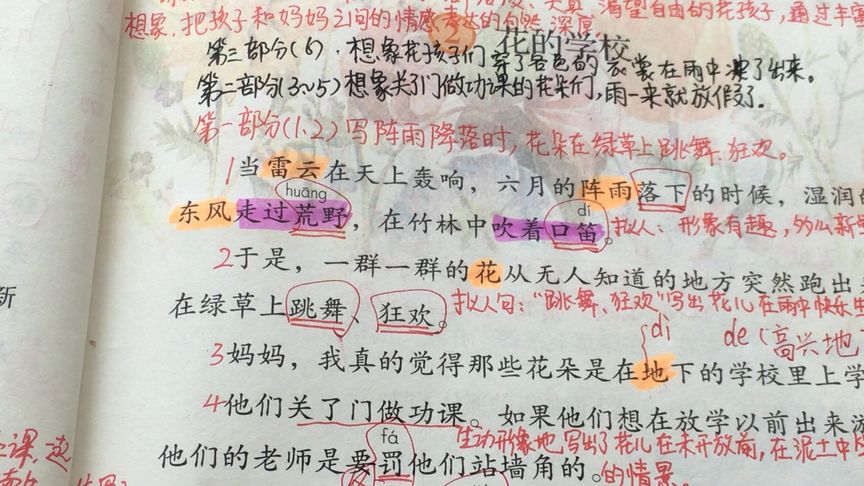 天真、渴望自由的花孩子，通过丰富
想象，把孩子和妈妈之间的情感表达的自然、深厚。
2 花的学校
第三部分(6)：想象花孩子们穿了各色的衣裳在雨中冲了出来。
第二部分(3~5)想象关了门做功课的花朵们，雨一来就放假了。
第一部分(1、2)写阵雨降落时，花朵在绿草上跳舞、狂欢。
1当雷云在天上轰响，六月的阵雨落下的时候，湿润的
huāng
dí
东风走过荒野，在竹林中吹着口笛。拟人：形象有趣，
2于是，一群一群的花从无人知道的地方突然跑出来
在绿草上跳舞、狂欢。拟人句：“跳舞、狂欢”写出花儿在雨中快乐
dì
de(高兴地
3妈妈，我真的觉得那些花朵是在地下的学校里上学
4他们关了门做功课。如果他们想在放学以前出来游
fá
生动形象地写出了花儿在未开放前，在泥土中
他们的老师是要罚他们站墙角的。的情景。
新
课